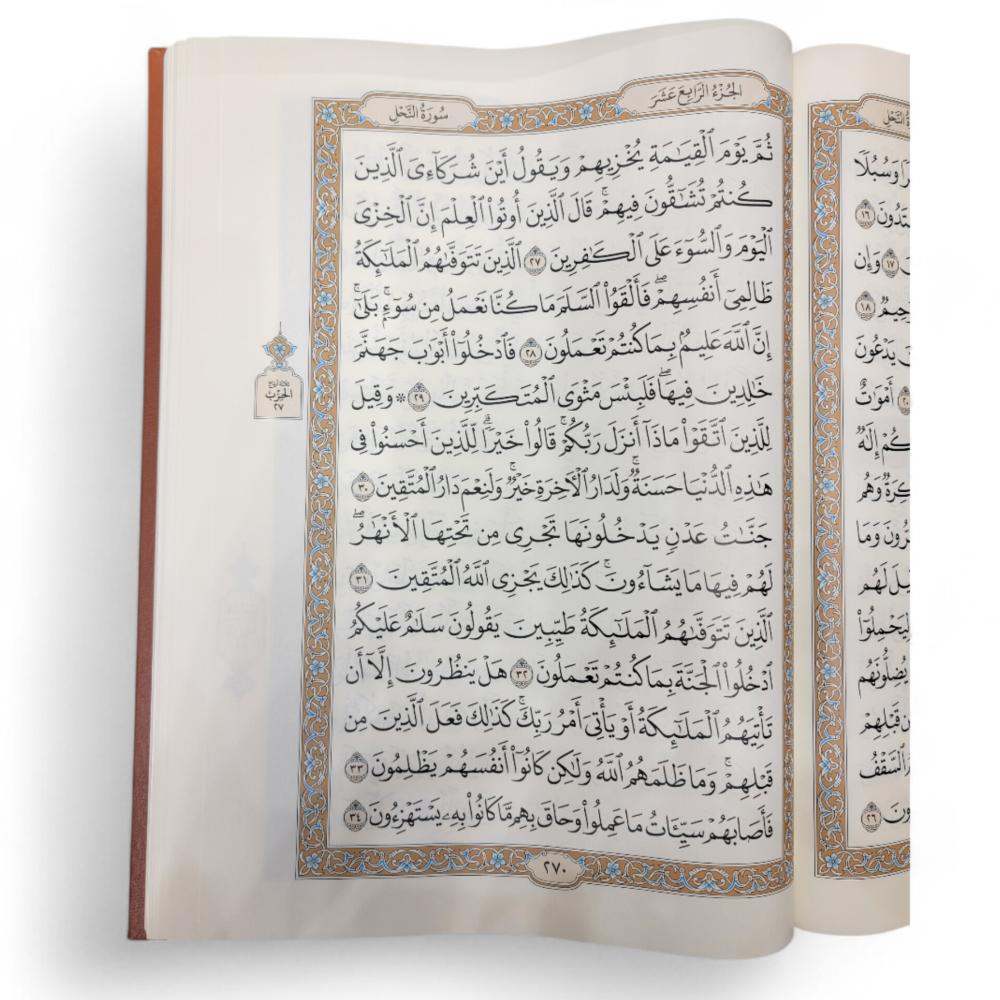 الجُزْءُ الرَّابِعَ عَشَرَ
سُورَةُ النَّحْلِ
ثُمَّ يَوْمَ الْقِيَامَةِ يُخْزِيهِمْ وَيَقُولُ أَيْنَ شُرَكَآءِىَ الَّذِينَ
كُنتُمْ تُشَاقُّونَ فِيهِمْ ۚ قَالَ الَّذِينَ أُوتُوا الْعِلْمَ إِنَّ الْخِزْىَ
الْيَوْمَ وَالسُّوٓءَ عَلَى الْكَافِرِينَ ٢٧ الَّذِينَ تَتَوَفَّاهُمُ الْمَلَائِكَةُ
ظَالِمِىٓ أَنفُسِهِمْ ۖ فَأَلْقَوُا السَّلَمَ مَا كُنَّا نَعْمَلُ مِن سُوٓءٍ ۚ بَلَىٰٓ ۚ
إِنَّ اللَّهَ عَلِيمٌۢ بِمَا كُنتُمْ تَعْمَلُونَ ٢٨ فَادْخُلُوٓا أَبْوَابَ جَهَنَّمَ
خَالِدِينَ فِيهَا ۖ فَلَبِئْسَ مَثْوَى الْمُتَكَبِّرِينَ ٢٩ * وَقِيلَ
لِلَّذِينَ اتَّقَوْا مَاذَآ أَنزَلَ رَبُّكُمْ ۚ قَالُوا خَيْرًا ۗ لِّلَّذِينَ أَحْسَنُوا فِى
هَٰذِهِ الدُّنْيَا حَسَنَةٌ ۚ وَلَدَارُ الْأَخِرَةِ خَيْرٌ ۚ وَلَنِعْمَ دَارُ الْمُتَّقِينَ ٣٠
جَنَّاتُ عَدْنٍ يَدْخُلُونَهَا تَجْرِى مِن تَحْتِهَا الْأَنْهَارُ ۖ
لَهُمْ فِيهَا مَا يَشَآءُونَ ۚ كَذَٰلِكَ يَجْزِى اللَّهُ الْمُتَّقِينَ ٣١
الَّذِينَ تَتَوَفَّاهُمُ الْمَلَائِكَةُ طَيِّبِينَ يَقُولُونَ سَلَامٌ عَلَيْكُمُ
ادْخُلُوا الْجَنَّةَ بِمَا كُنتُمْ تَعْمَلُونَ ٣٢ هَلْ يَنظُرُونَ إِلَّآ أَن
تَأْتِيَهُمُ الْمَلَائِكَةُ أَوْ يَأْتِىَ أَمْرُ رَبِّكَ ۚ كَذَٰلِكَ فَعَلَ الَّذِينَ مِن
قَبْلِهِمْ ۚ وَمَا ظَلَمَهُمُ اللَّهُ وَلَٰكِن كَانُوٓا أَنفُسَهُمْ يَظْلِمُونَ ٣٣
فَأَصَابَهُمْ سَيِّئَاتُ مَا عَمِلُوا وَحَاقَ بِهِم مَّا كَانُوا بِهِۦ يَسْتَهْزِءُونَ ٣٤
٢٧٠
ثلاثة أرباع
الحِزْب
٢٧
النَّحْلِ
وَسُبُلًا
١٦
١٧ وَإِن
١٨
يَدْعُونَ
أَمْوَاتٌ
إِلَٰهٌ
وَهُم
وَمَا
لَهُم
لِيَحْمِلُوٓا
يُضِلُّونَهُم
قَبْلِهِمْ
السَّقْفُ
٢٦